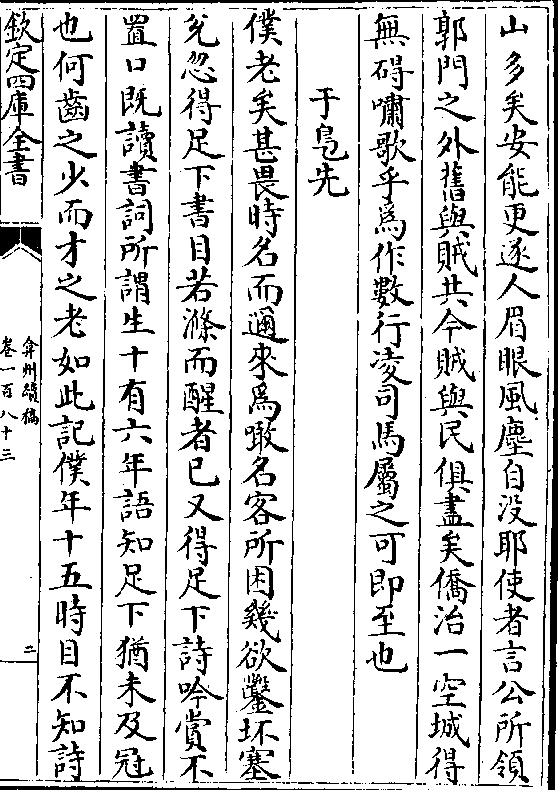 山多矣安能更逐人眉眼風塵自没耶使者言公所領
郭門之外舊與賊共今賊與民俱盡矣僑治一空城得
無碍嘯歌乎為作數行凌司馬屬之可即至也
于鳬先
僕老矣甚畏時名而邇來為噉名客所困幾欲鑿坏塞
兊忽得足下書目若滌而醒者已又得足下詩吟賞不
置口既讀書詞所謂生十有六年語知足下猶未及冠
也何齒之少而才之老如此記僕年十五時目不知詩
欽定四庫全書
弇州續稿
卷一百八十三
二